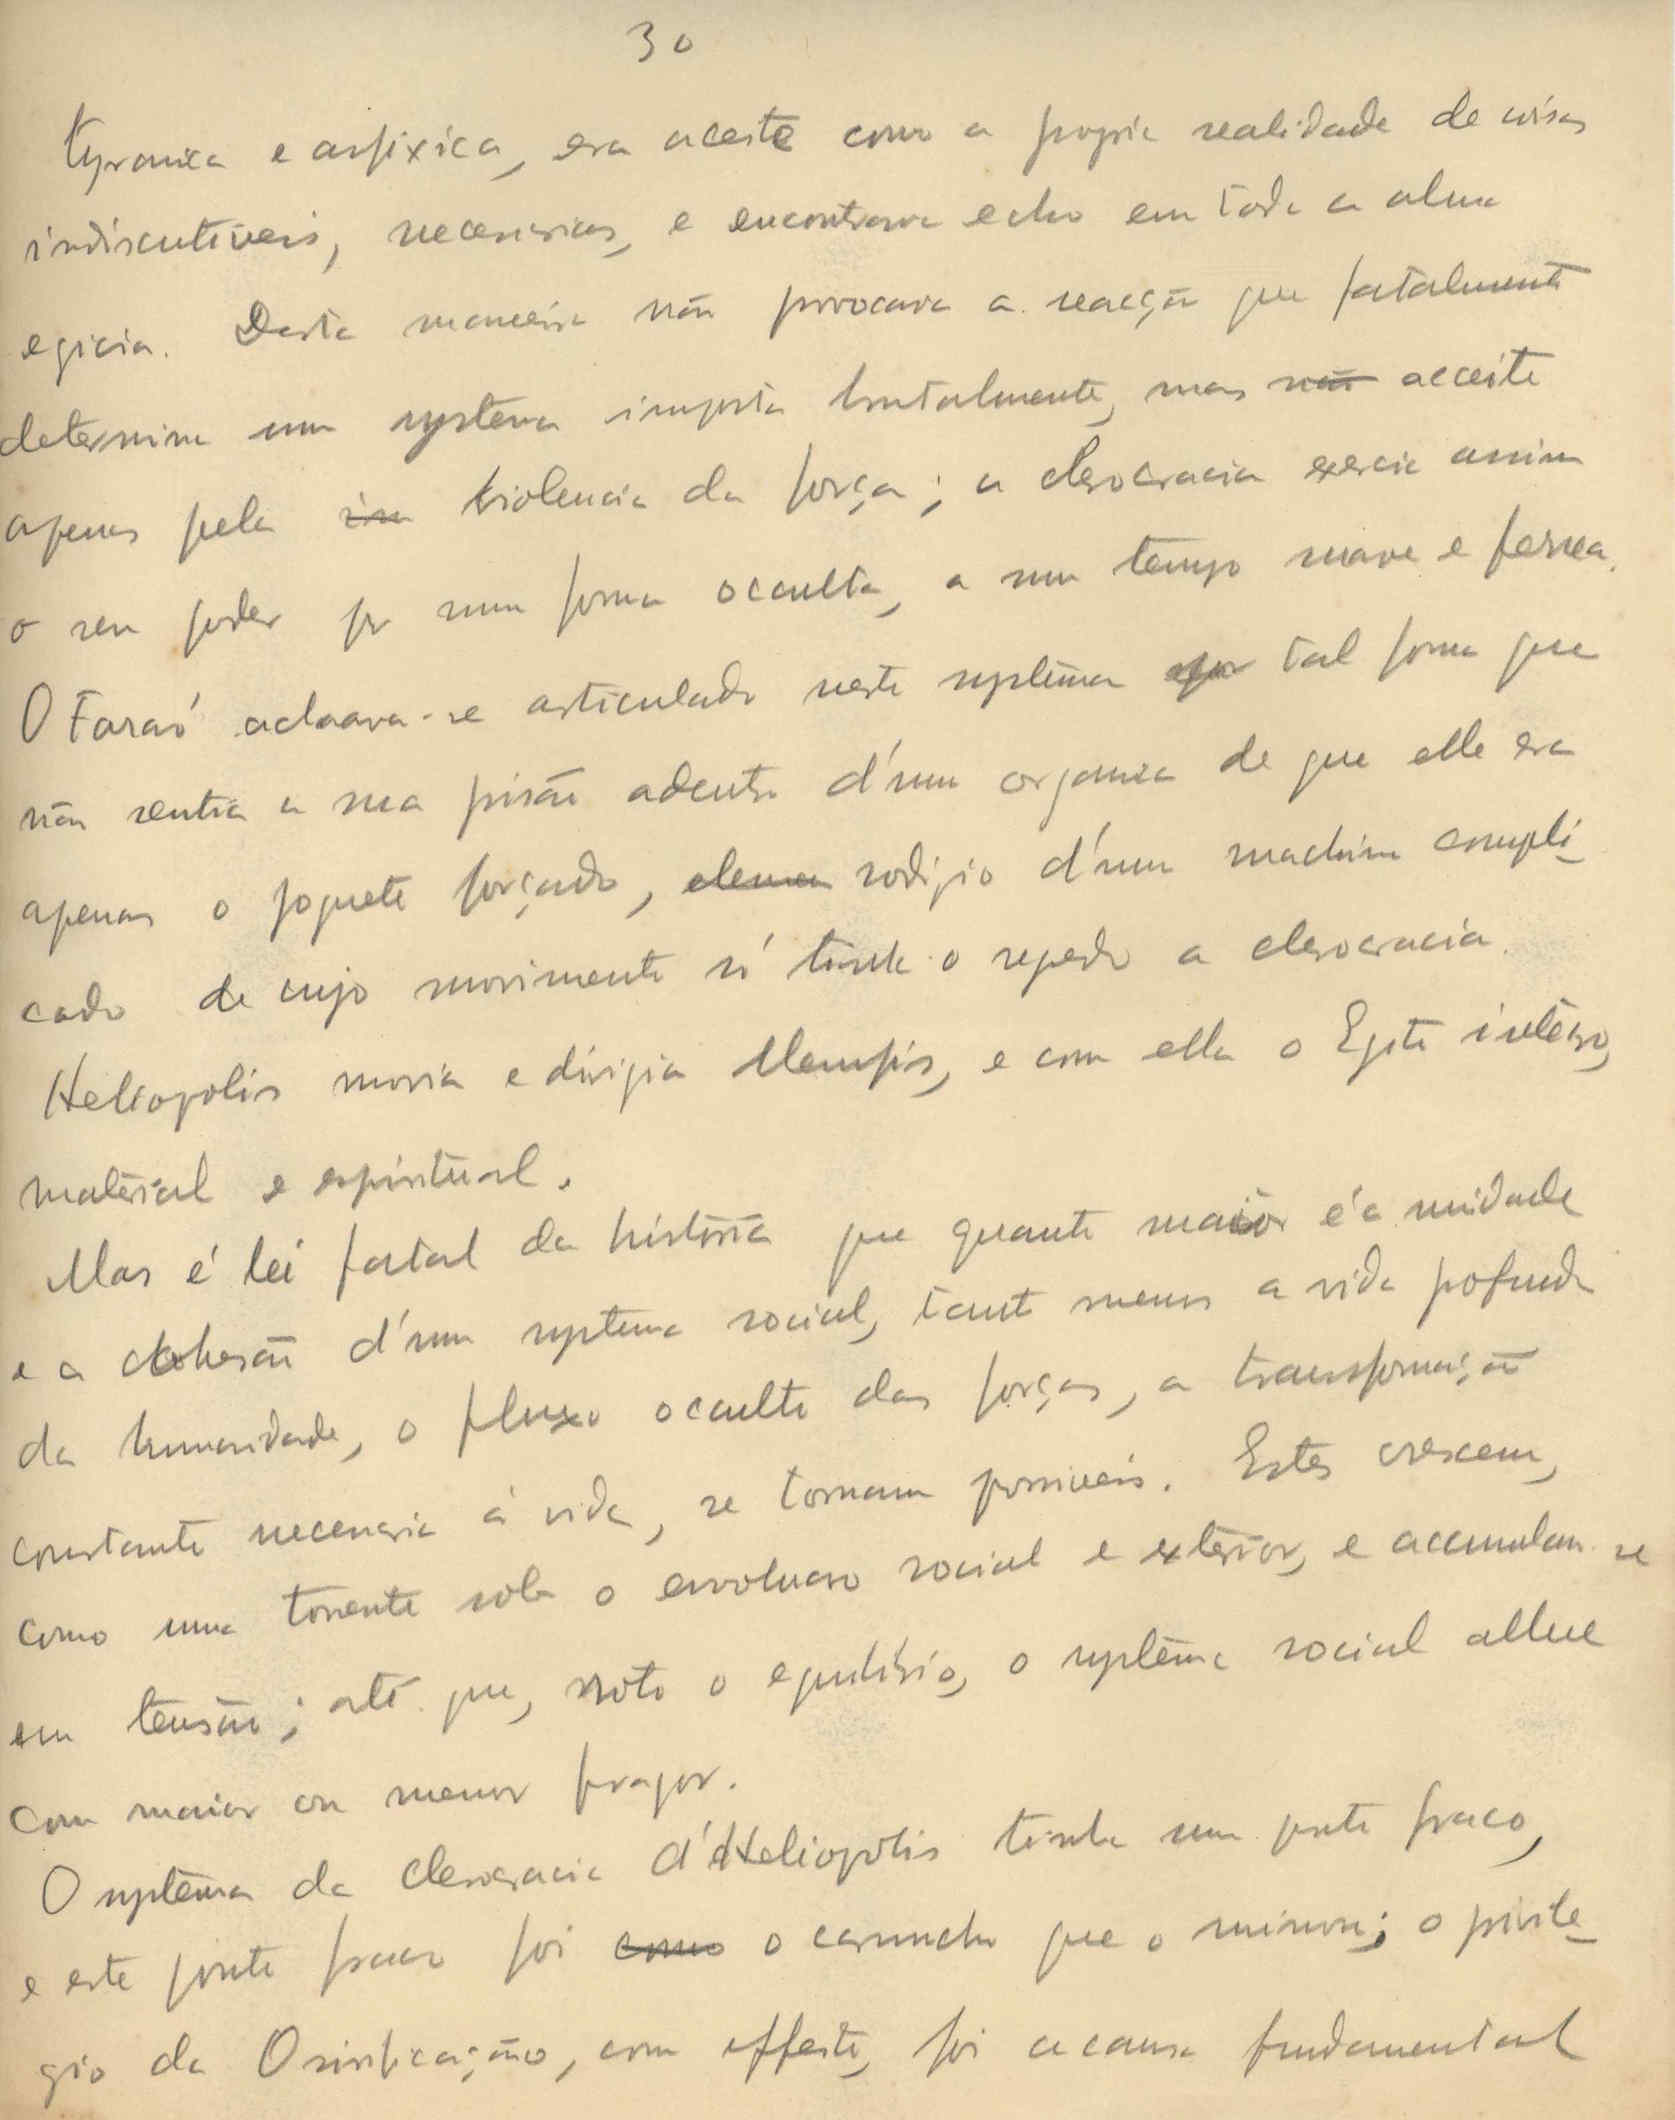 30
tyranica e asfixica, era aceite como a propria realidade de coisas
indiscutiveis, necessarias, e encontrava echo em toda a alma
egicia. Desta maneira não provocava a reacção que fatalmente
determina um systema imposto brutalmente, mas não acceite
apenas pela im violencia da força; a clerocracia exercia assim
o seu poder por uma forma occulta, a um tempo suave e ferrea.
O Faraó achava-se articulado neste systema por tal forma que
não sentia a sua prisão adentro d'um organica de que elle era
apenas o joguete forçado, elemen rodizio d'uma machina compli-
cado de cujo movimento só tinha o segredo a clerocracia.
Heliopolis movia e dirigia Memfis, e com ella o Egito inteiro,
material e espiritual.
Mas é lei fatal da historia que quanto maior é a unidade
e a cohesão d'um systema social, tanto menos a vida profunda
da humanidade, o fluxo occulto das forças, a transformação
constante necessaria á vida, se tornam possiveis. Estes crescem,
como uma torrente sob o involucro social e exterior, e accumulam-se
em tensão; até que, roto o equilibrio, o systema social allue
com maior ou menor fragor.
O systema da clerocracia d'Heliopolis tinha um ponto fraco,
e este ponto fraco foi como o caruncho que o minou; o privile-
gio da Osirificação, com effeito, foi a causa fundamental